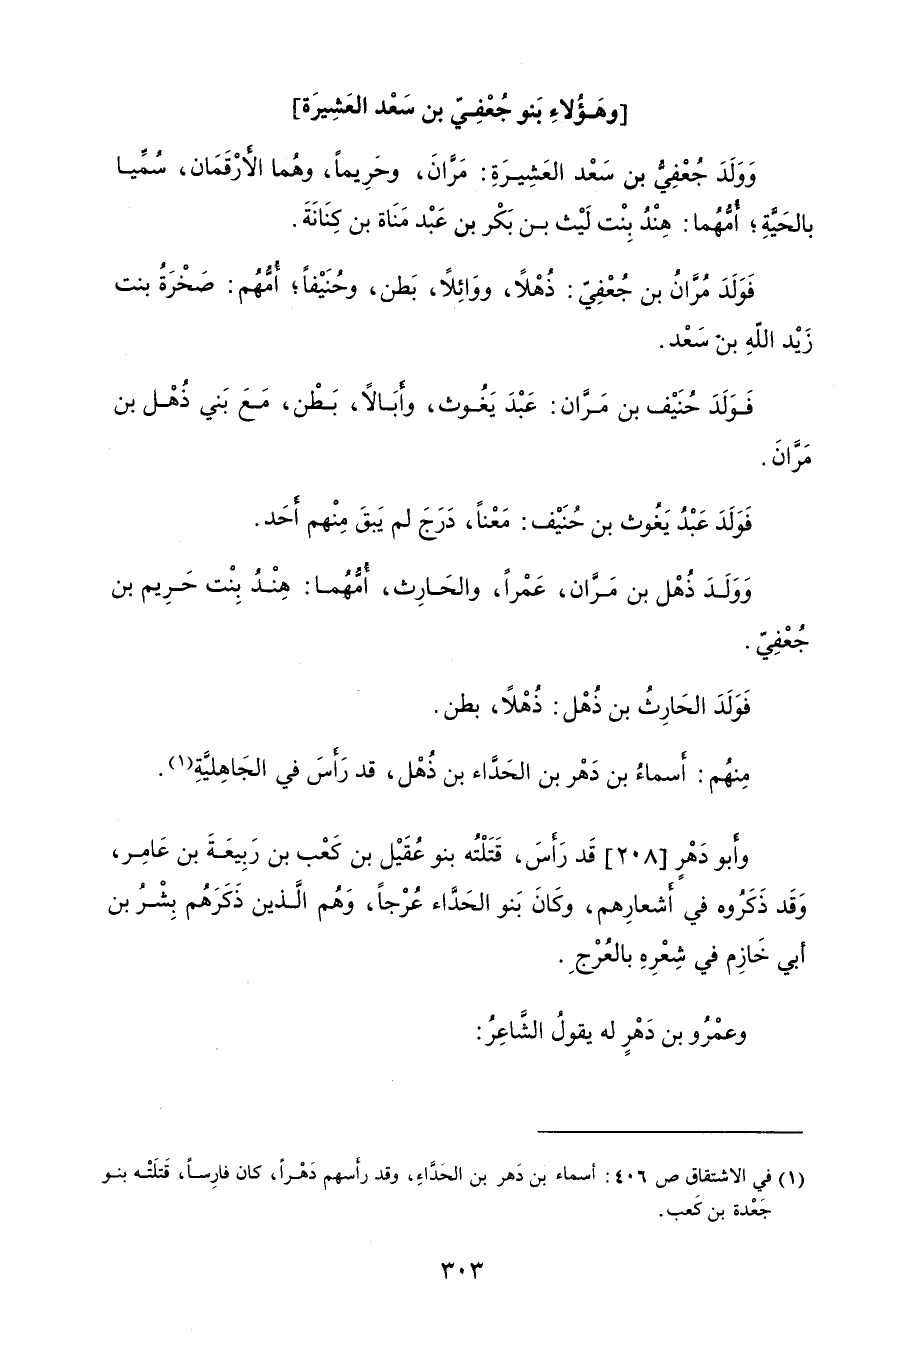 [وهَـؤُلاءِ بَنو جُعْفِـيّ بن سَعْد العَشِيرَة]
وَوَلَدَ جُعْفِيُّ بن سَعْد العَشِيـرَةِ: مَرَّانَ، وحَرِيماً، وهُما الأَرْقَمَان، سُمِّيـا
بالحَيَّةِ؛ أُمُّهُما: هِنْدُ بِنْت لَيْث بـن بَكْر بن عَبْد مَنَاة بن كِنَانَةَ.
فَوَلَدَ مُرَّانُ بن جُعْفِيّ: ذُهْلًا، ووَائِلًا، بَطن، وحُنَيْفاً؛ أُمُّهُم: صَخْرَةُ بنت
زَيْد اللهِ بن سَعْد.
فَـوَلَدَ حُنَيْف بن مَـرَّان: عَبْدَ يَغُـوث، وأَبَـالًا، بَـطْن، مَـعَ بَني ذُهْـل بن
مَرَّانَ.
فَوَلَدَ عَبْدُ يَغُوث بن حُنَيْف: مَعْناً، دَرَجَ لم يَبقَ مِنْهم أَحَد.
وَوَلَـدَ ذُهْل بن مَـرَّان، عَمْراً، والحَـارِث، أُمُّهُمـا: هِنْـدُ بِنْت حَـرِيم بن
جُعْفِيّ.
فَوَلَدَ الحَارِثُ بن ذُهْل: ذُهْلًا، بطن.
مِنهُم: أَسماءُ بن دَهْر بن الحَدَّاء بن ذُهْل، قد رَأَسَ في الجَاهِليَّةِ(١).
وأَبو دَهْرٍ [٢٠٨] قَد رَأَسَ، قَتَلَتْه بنو عُقَيْل بن كَعْب بن رَبِيعَـةَ بن عَامِـر،
وَقَد ذَكَرُوه في أَشعارِهم، وكَانَ بَنو الحَدَّاء عُرْجاً، وَهُم الَّـذين ذَكَرَهُم بِشْـرُ بن
أبي خَازِم في شِعْرِهِ بالعُرْجِ.
وعمْرُو بن دَهْرٍ له يقولُ الشَّاعِرُ:
(١) في الاشتقاق ص ٤٠٦: أسماء بن دَهر بن الحَدَّاءِ، وقد رأسهم دَهْـراً، كان فارِسـاً، قَتلَتْـه بنـو
جَعْدة بن كَعب.
٣٠٣